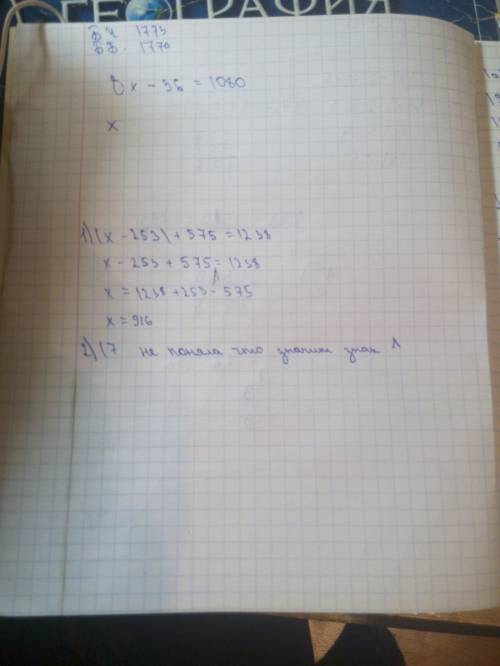 ГЕОГРАФИЯ
БЧ 1773
ББ 1770
8x - 56 = 1080
x
1) (x - 253) + 575 = 1238
x - 253 + 575 = 1238
x = 1238 + 253 - 575
x = 916
2) (7 не поняла что значит знак Λ